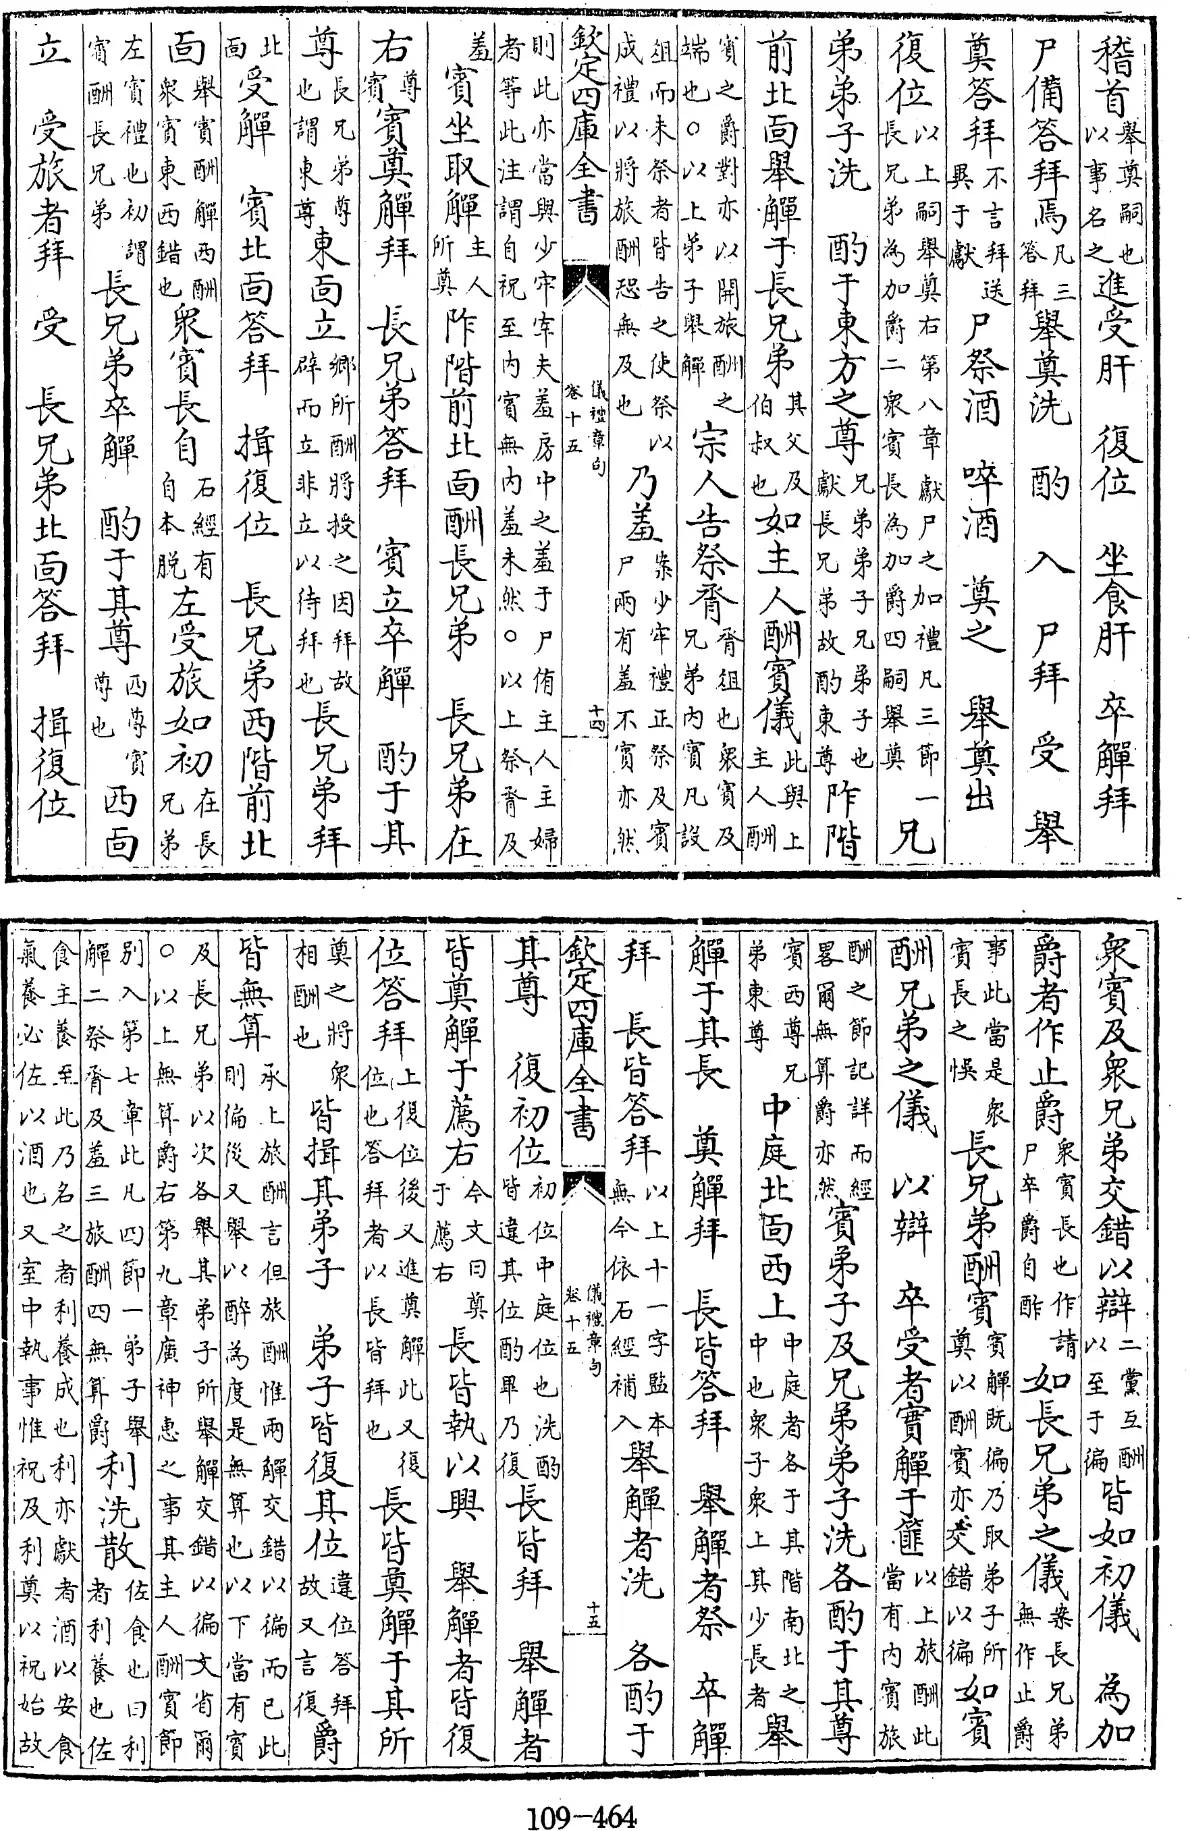 稽首舉奠嗣也以事名之進受肝　復位　坐食肝　卒觶拜
尸備答拜焉凡三答拜舉奠洗　酌　入　尸拜　受　舉
奠答拜不言拜送異于獻尸祭酒　啐酒　奠之　舉奠出
復位以上嗣舉奠右第八章獻尸之加禮凡三節一兄長兄弟為加爵二衆賓長為加爵四嗣舉奠兄
弟弟子洗　酌于東方之尊兄弟弟子兄弟子也獻長兄弟故酌東尊阼階
前北面舉觶于長兄弟其父及伯叔也如主人酬賓儀此與上主人酬
賓之爵對亦以開旅酬之端也○以上弟子舉觶宗人告祭脀脀俎也衆賓及兄弟內賓凡設
俎而未祭者皆告之使祭以成禮以將旅酬恐無及也乃羞案少牢禮正祭及賓尸兩有羞不賓亦然
欽定四庫全書　儀禮章句卷十五　十四
則此亦當與少牢宰夫羞房中之羞于尸侑主人主婦者等此注謂自祝至內賓無內羞未然○以上祭脀及
羞賓坐取觶主人所奠阼階前北面酬長兄弟　長兄弟在
右尊賓賓奠觶拜　長兄弟答拜　賓立卒觶　酌于其
尊長兄弟尊也謂東尊東面立鄉所酬將授之因拜故辟而立非立以待拜也長兄弟拜
北面受觶　賓北面答拜　揖復位　長兄弟西階前北
面舉賓酬觶西酬衆賓東西錯也衆賓長自石經有自本脫左受旅如初在長兄弟
左賓禮也初謂賓酬長兄弟長兄弟卒觶　酌于其尊西尊賓尊也西面
立　受旅者拜　受　長兄弟北面答拜　揖復位
衆賓及衆兄弟交錯以辯二黨互酬以至于徧皆如初儀　為加
爵者作止爵衆賓長也作請尸卒爵自酢如長兄弟之儀案長兄弟無作止爵
事此當是衆賓長之悞長兄弟酬賓賓觶既徧乃取弟子所奠以酬賓亦交錯以徧如賓
酬兄弟之儀　以辯　卒受者實觶于篚以上旅酬此當有內賓旅
酬之節記詳而經畧爾無算爵亦然賓弟子及兄弟弟子洗各酌于其尊
賓西尊兄弟東尊中庭北面西上中庭者各于其階南北之中也衆子衆上其少長者舉
觶于其長　奠觶拜　長皆答拜　舉觶者祭　卒觶
拜　長皆答拜以上十一字監本無今依石經補入舉觶者洗　各酌于
欽定四庫全書　儀禮章句卷十五　十五
其尊　復初位初位中庭位也洗酌皆違其位酌畢乃復長皆拜　舉觶者
皆奠觶于薦右今文曰奠于薦右長皆執以興　舉觶者皆復
位答拜上復位後又進奠觶此又復位也答拜者以長皆拜也長皆奠觶于其所
奠之將衆相酬也皆揖其弟子　弟子皆復其位違位答拜故又言復爵
皆無算承上旅酬言但旅酬惟兩觶交錯以徧而已此則徧後又舉以醉為度是無算也以下當有賓
及長兄弟以次各舉其弟子所舉觶交錯以徧文省爾○以上無算爵右第九章廣神惠之事其主人酬賓節
別入第七章此凡四節一弟子舉觶二祭脀及羞三旅酬四無算爵利洗散佐食也曰利者利養也佐
食主養至此乃名之者利養成也利亦獻者酒以安食氣養必佐以酒也又室中執事惟祝及利奠以祝始故
109-464